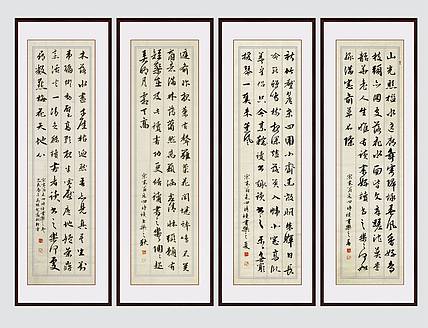 山光照檻水遶廊舞雩歸詠春風香好鳥
枝頭亦朋友落花水面皆文章蹉跎莫遣
韶光老人生唯有讀書好讀書之樂樂何如
綠滿窗前草不除
宋末翁森四時讀書樂之春
新竹壓檐桑四圍小齋幽敞明朱曦晝長
吟罷蟬鳴樹夜深燼落螢入幃北窗高臥
羲皇侶只因素稔讀書趣讀書之樂樂無窮
瑤琴一曲來薰風
宋末翁森四時讀書樂之夏
庭前昨夜葉有聲籬豆花開蟋蟀鳴不覺
商意滿林薄蕭然萬籟涵虛清近床賴有
短檠在及此讀書功更倍讀書之樂樂陶陶起
弄明月霜天高
宋末翁森四時讀書樂之秋
木落水盡千崖枯迥然吾亦見真吾坐對
韋編燈動壁高歌夜半雪壓廬地爐茶鼎
烹活火四壁圖書中有我讀書之樂何處
尋數點梅花天地心